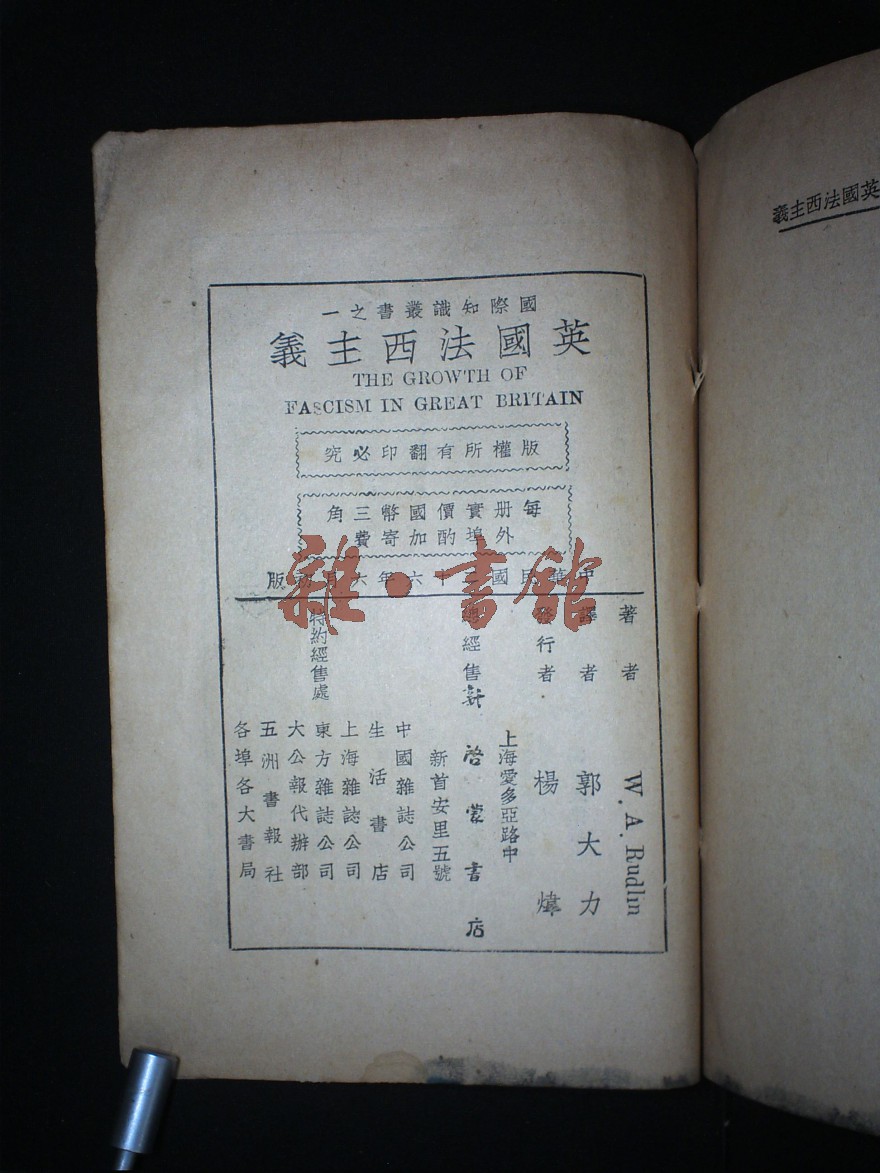 國際知識叢書之一
英國法西主義
THE GROWTH OF
FASCISM IN GREAT BRITAIN
版權所有翻印必究
每册實價國幣三角
外埠酌加寄費
中華民國十六年六月初版
著者 W. A. Rudlin
譯者 郭大力
發行者 楊煒
上海愛多亞路中
總經售 新啓蒙書店
新首安里五號
中國雜誌公司
生活書店
上海雜誌公司
特約經售處 東方雜誌公司
大公報代辦部
五洲書報社
各埠各大書局
雜·書館
英國法西主義